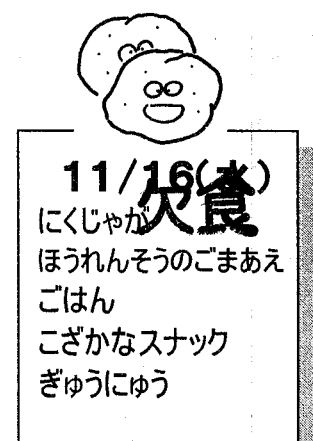 11/16(水)
欠食
にくじゃが
ほうれんそうのごまあえ
ごはん
こざかなスナック
ぎゅうにゅう